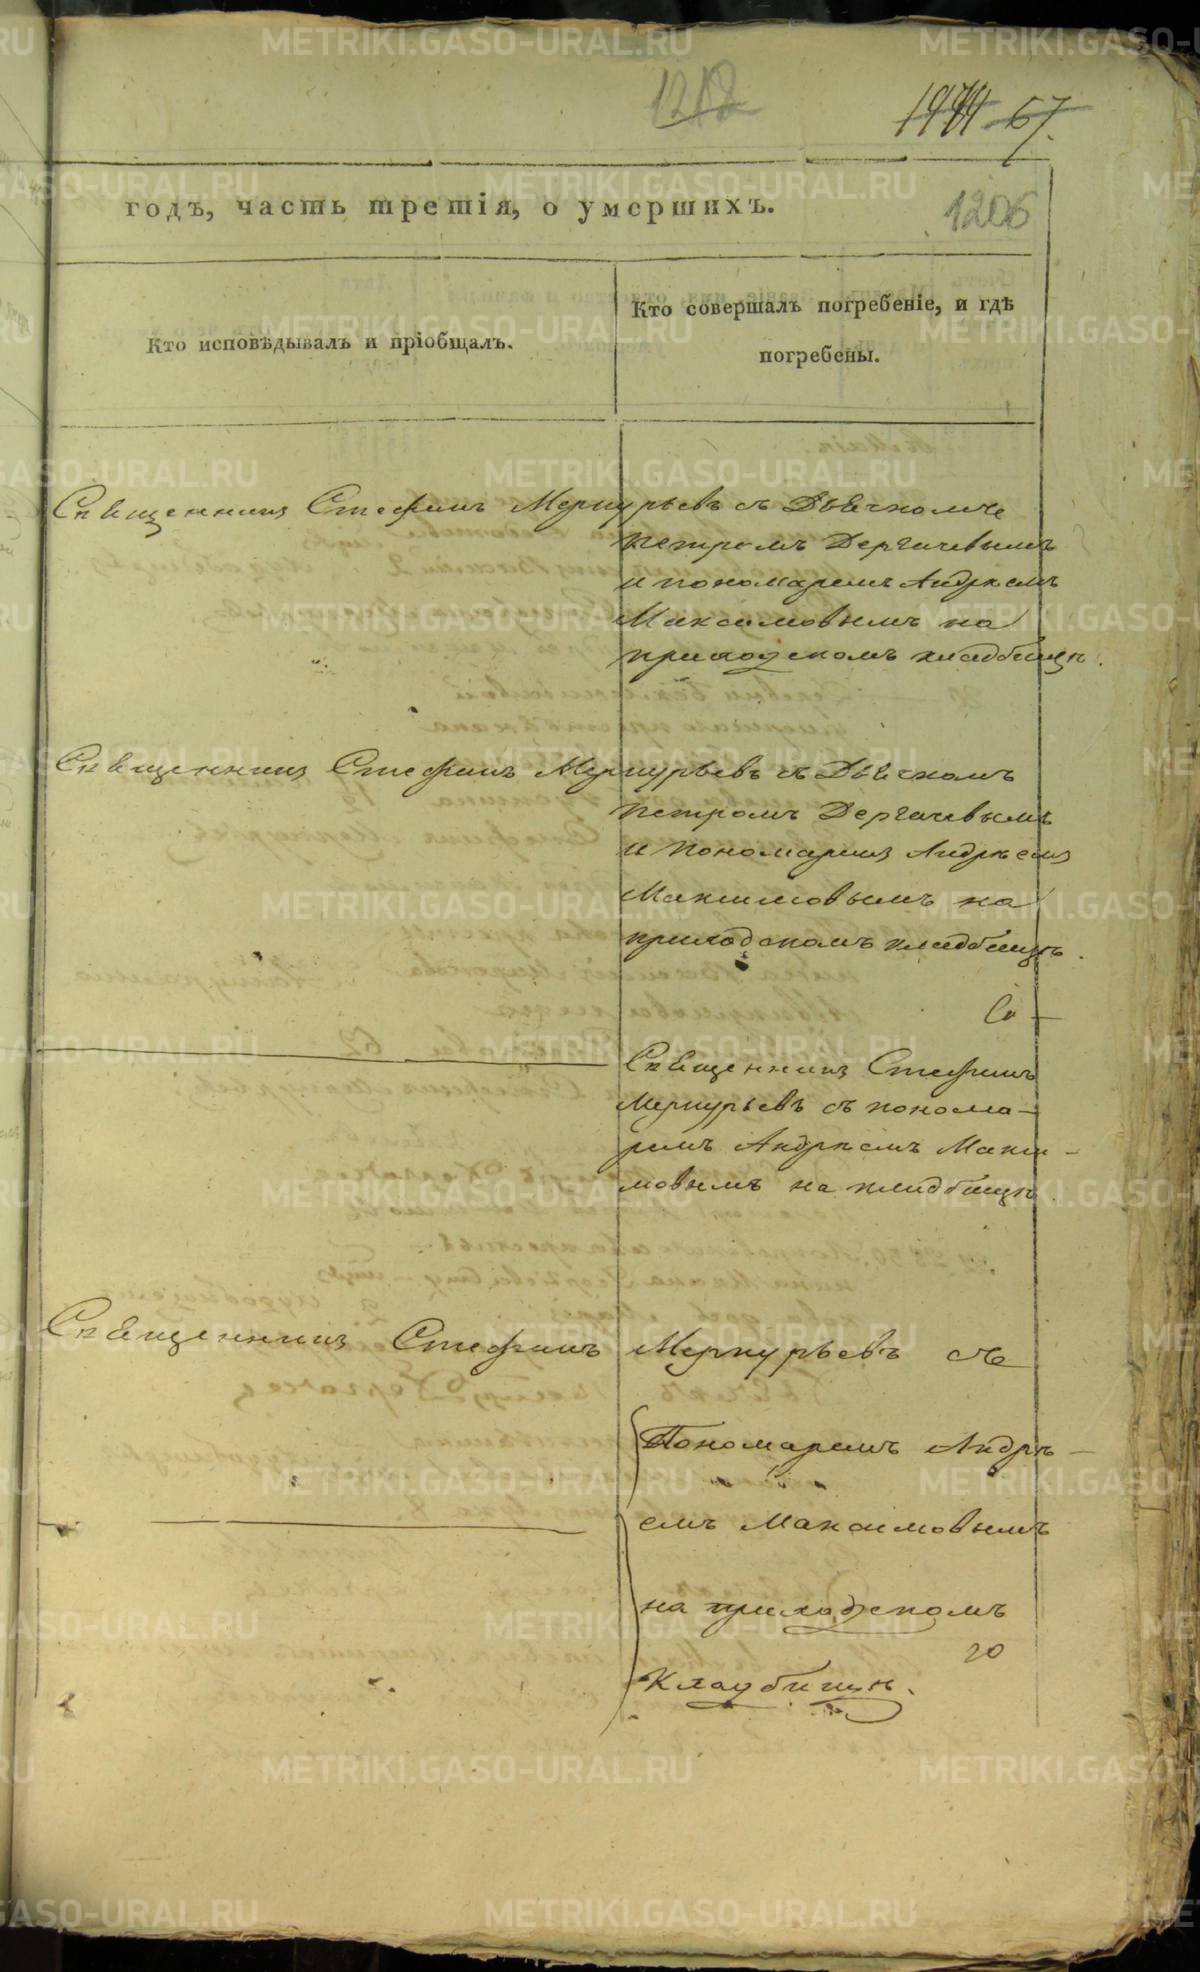 1218
1979 67.
годъ, часть третія, о умершихъ.
1206
Кто исповѣдывалъ и пріобщалъ.
Кто совершалъ погребеніе, и гдѣ
погребены.
Священникъ Стефанъ Меркурьевъ съ Дьячкомъ
Петромъ Дергачевымъ
и пономаремъ Андреемъ
Максимовымъ на
приходскомъ кладбищѣ.
Священникъ Стефанъ Меркурьевъ съ Дьячкомъ
Петромъ Дергачевымъ
и Пономаремъ Андреемъ
Максимовымъ на
приходскомъ кладбищѣ.
Священникъ Стефанъ
Меркурьевъ съ понома-
ремъ Андреемъ Макси-
мовымъ на кладбищѣ.
Священникъ Стефанъ Меркурьевъ съ
Пономаремъ Андрѣ-
емъ Максимовымъ
на приходскомъ
кладбищѣ.
METRIKI.GASO-URAL.RU